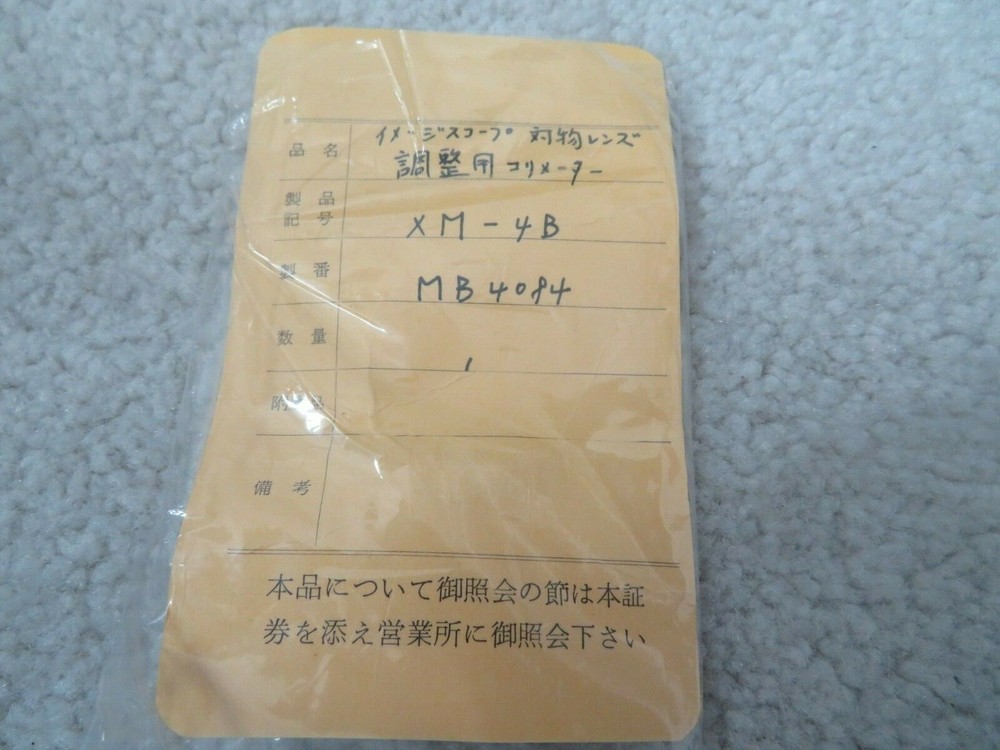 品名 イメージスコープ 対物レンズ
調整用コリメーター
製品
記号 XM-4B
製番 MB4084
数量 1
附属品
備考
本品について御照会の節は本証
券を添え営業所に御照会下さい